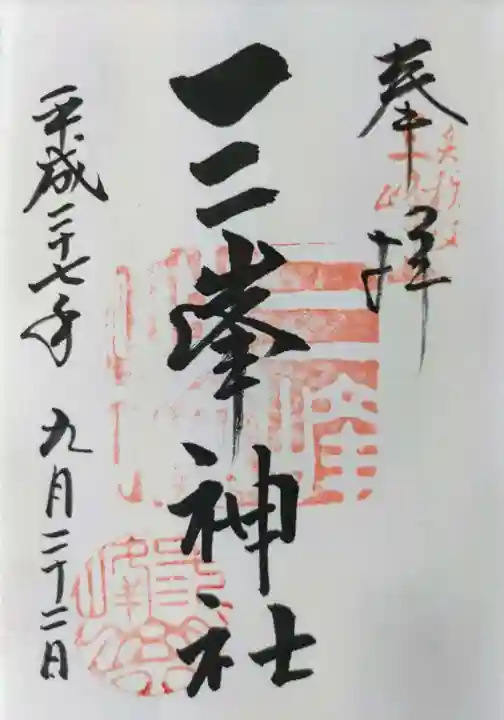 奉拝
三峯神社
平成二十七年九月二十二日